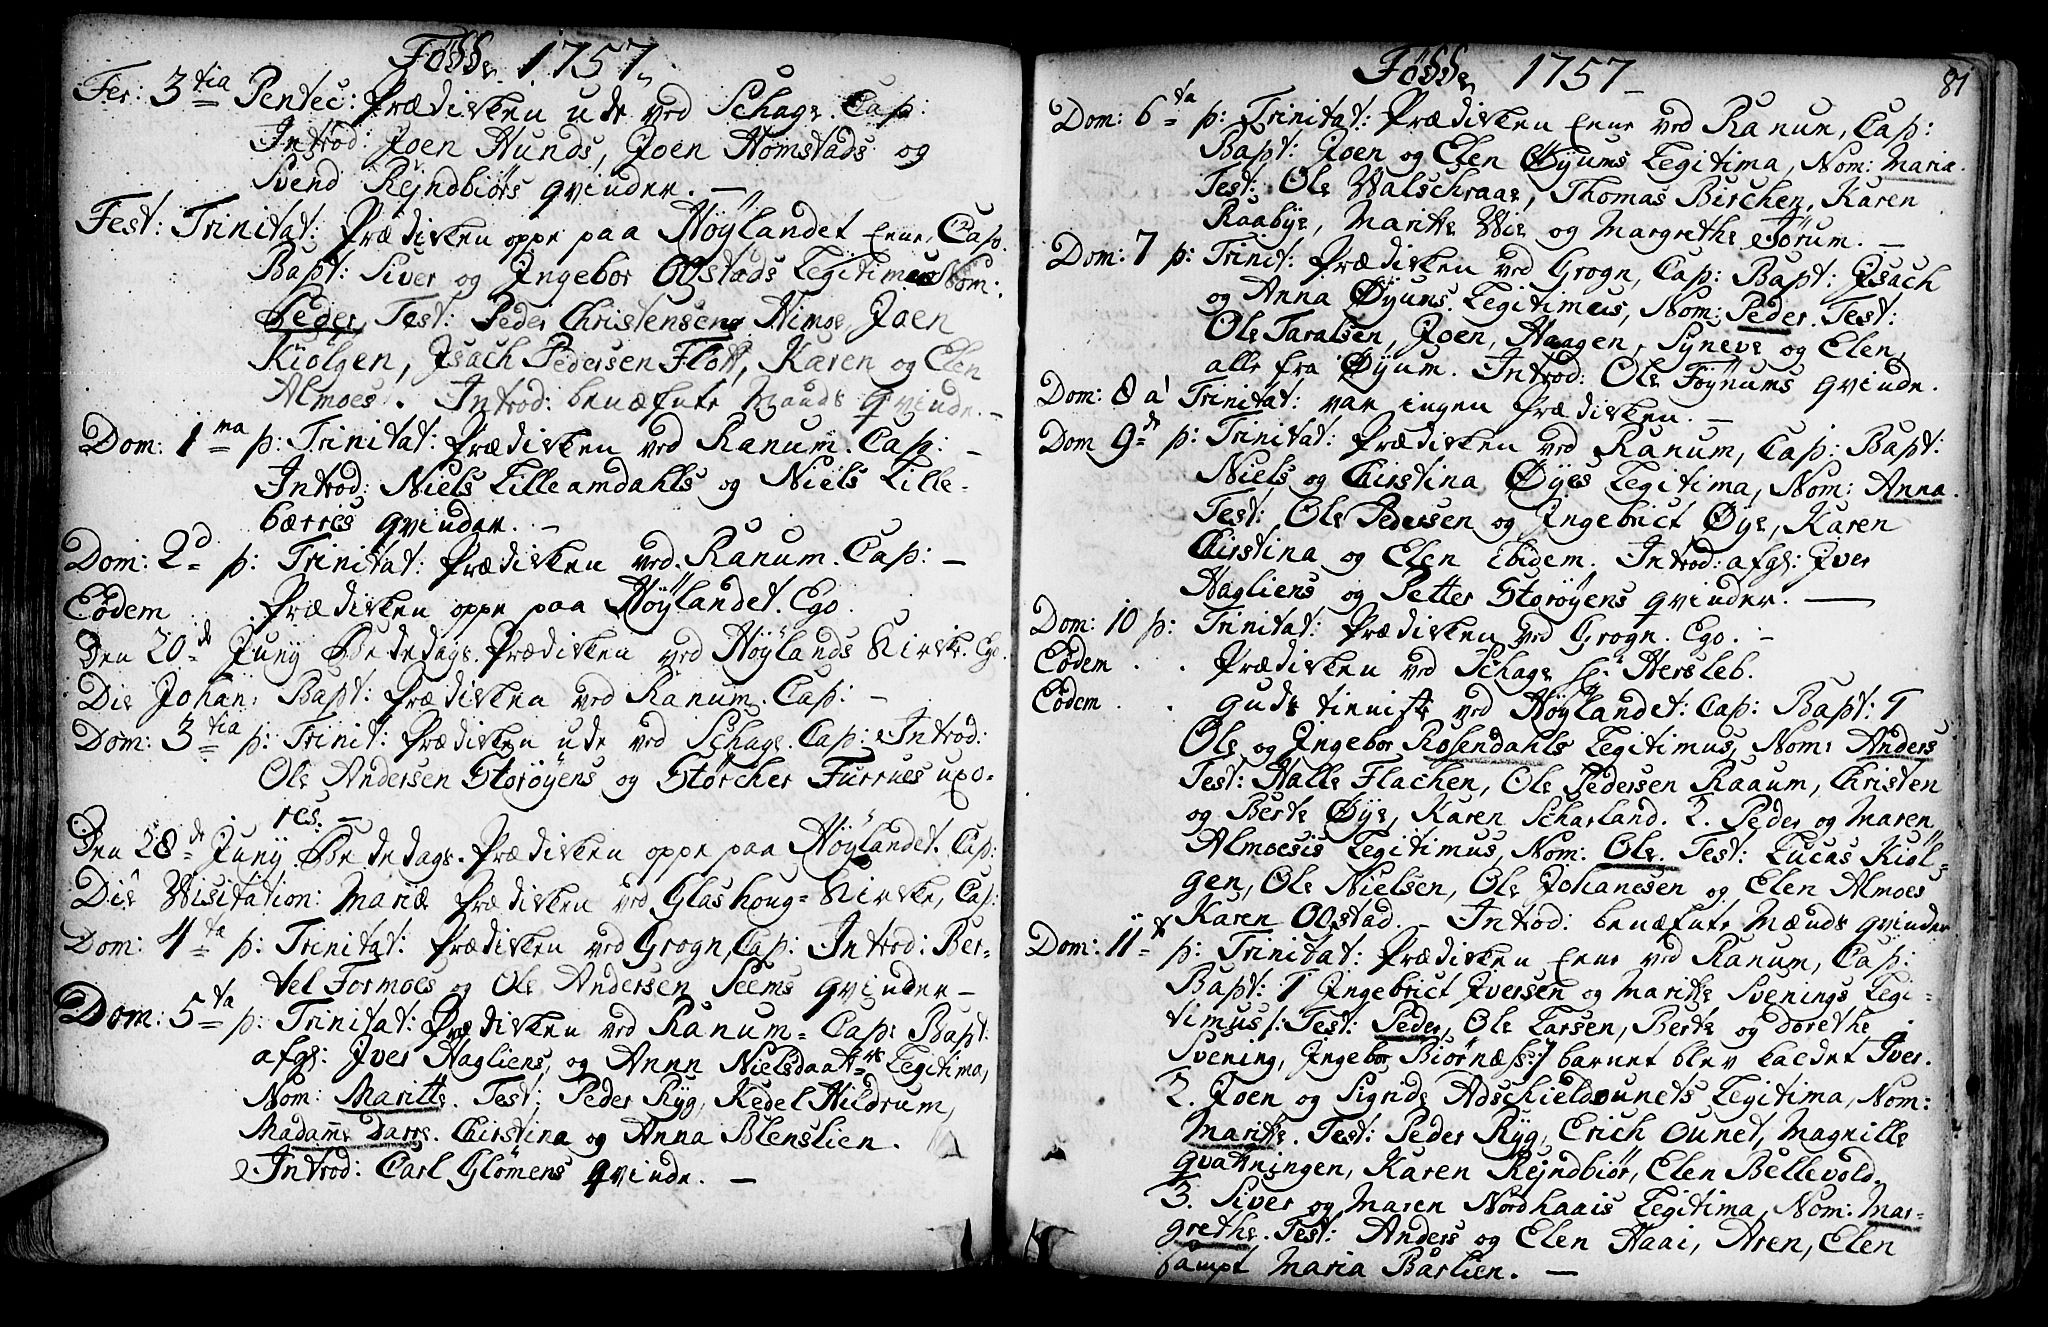 Födde 1757
Fer: 3tia Pentec: Prædiken ude ved Schage. Cap:
Introd: Joen Hunds, Joen Homstads og
Svend Rejndbiörs qvinder. —
Fest: Trinitat: Prædiken oppe paa Höylandet Ene, Cap.
Bapt: Siver og Ingebor Ogstads Legitimus Nom:
Peder, Test: Peder Christensens Almoe, Joen
Kiölgen, Isach Pedersen Flott, Karen og Elen
Almoes. Introd: benæfnte Mands qvinde. —
Dom: 1ma p: Trinitat: Prædiken ved Ranum. Cap: —
Introd: Niels Lilleamdahls og Niels Lille-
bærres qvinder. —
Dom: 2d p: Trinitat: Prædiken ved Ranum. Cap: —
Eodem . Prædiken oppe paa Höylandet. Ego.
Den 20de Juny Bededags Prædiken ved Höylands Kirke. Ego.
Die Johan: Bapt: Prædiken ved Ranum. Cap: —
Dom: 3tia p: Trinit: Prædiken ude ved Schage. Cap: Introd:
Ole Andersen Storöyens og Störcher Furrues uxo-
res. —
Den 28de Juny Bededags Prædiken oppe paa Höylandet. Cap:
Die Visitation: Mariæ Prædiken ved Glashoug-Kirke, Cap:
Dom: 4ta p: Trinitat: Prædiken ved Grogn, Cap: Introd: Ber-
tel Formoes og Ole Andersen Seems qvinder —
Dom: 5ta p: Trinitat: Prædiken ved Ranum- Cap: Bapt:
afgl: Iver Hagliens, og Annn Nielsdaatrs Legitima,
Nom: Maritte. Test: Peder Ryg, Kedel Hildrum,
Madame Darre. Chirstina og Anna Blenslien.
Introd: Carl Glömens qvinde. —
Födde 1757 —
81
Dom: 6ta p: Trinitat: Prædiken Ene ved Ranum, Cap:
Bapt: Joen og Elen Øyums Legitima, Nom: Maria.
Test: Ole Walschraae, Thomas Birchen, Karen
Raabye, Maritte Wie og Margrethe Jörum. —
Dom: 7 p: Trinit: Prædiken ved Grogn, Cap: Bapt: Isach
og Anna Øyums Legitimus, Nom: Peder. Test:
Ole Taralsen, Joen, Haagen, Syneve og Elen,
alle fra Øyum. Introd: Ole Föynums qvinde.
Dom: 8 a Trinitat: var ingen Prædiken. —
Dom 9de p: Trinitat: Prædiken ved Ranum, Cap: Bapt:
Niels og Chirstina Øyes Legitima, Nom: Anna.
Test: Ole Pedersen og Ingebrict Øye, Karen
Chirstina og Elen Ibidem. Introd: afgl: Iver
Hagliens og Petter Storöyens qvinder. —
Dom: 10 p: Trinitat: Prædiken ved Grogn. Ego. —
Eodem . . Prædiken ved Schage Hr Hersleb.
Eodem . . Guds tieniste ved Höylandet: Cap: Bapt: 1
Ole og Ingebor Rosendahls Legitimus, Nom: Anders
Test: Halle Flachen, Ole Pedersen Raaum, Christen
og Berte Øye, Karen Scharland. 2. Peder og Maren
Almoesis Legitimus, Nom: Ole. Test: Lucas Kiöl-
gen, Ole Nielsen, Ole Johanesen og Elen Almoes
Karen Ogstad. — Introd: benæfnte Mænds qvinder
Dom: 11t p: Trinitat: Prædiken Ene ved Ranum, Cap:
Bapt: 1 Ingebrict Iversen og Maritte Svenings Legi-
timus /: Test: Peder, Ole Larsen, Berte og Dorethe
Svening, Ingebor Biörnæss :/ barnet blev kaldet Iver.
2. Joen og Signde Adschieldounets Legitima, Nom:
Maritte. Test: Peder Ryg, Erich Ounet, Magnille
qvatningen, Karen Rejndbiör, Elen Bellevold.
3. Siver og Maren Nordhaais Legitima, Nom: Mar-
grethe. Test: Anders og Elen Haai, Aren, Elen
sampt Maria Barlien. —